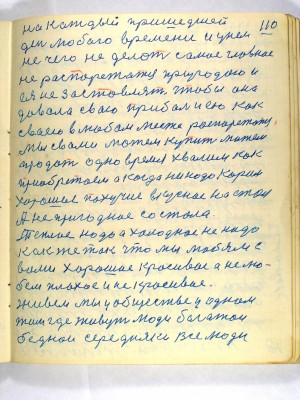 на каждый пришедшей 110
ден любого времени и у нем
не чего не делот самае главное
не распорежатц природаю и
ея не заставлят чтобы она
давала сваю прибал и ею как
сваею в любом месте распоредатц
мы с вами можем купит можем
продат одно время хвалим как
приобретаем а когда ненадо карим
хорошае пахучие вкусное на стол
А не пригодное со стола.
Теплае надо а халодное не надо
как же так что мы любям с
вами хорошае красивае а не лю-
бем плохое и не красивае.
живем мы у обществе у одном
там где живут люди багатаи
беднаи середняки все люди